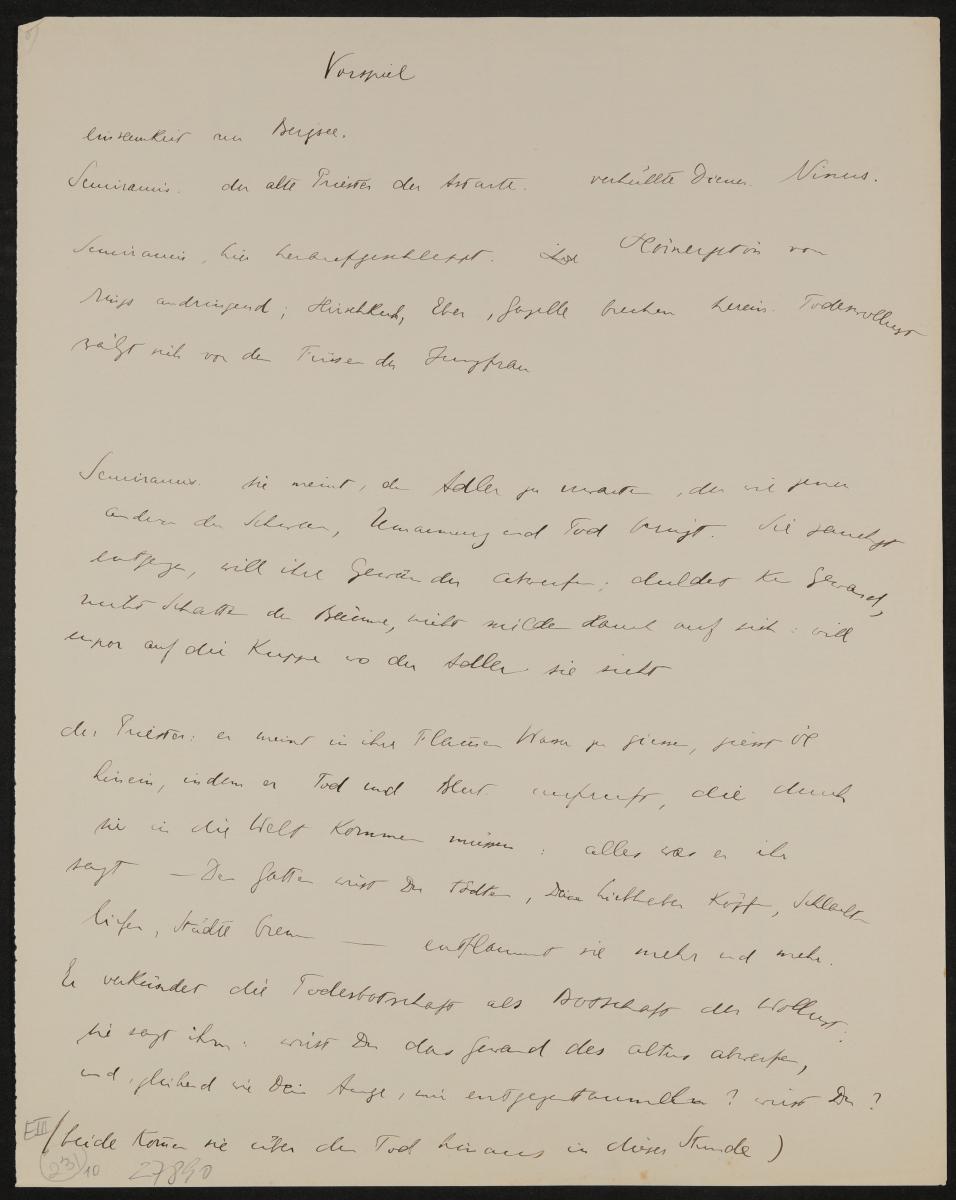 Vorspiel
Einsamkeit am Bergsee.
Semiramis. der alte Priester der Astarte. verhüllte Diener. Ninus.
Semiramis, hier heraufgeschleppt. Hörnergetön von
rings andringend; Hirschkuh, Eber, Gazelle brechen herein. Todeswollust
wälzt sich vor den Füssen der Jungfrau
Semiramis. sie meint, den Adler zu erwarten, der wie jener
andere der Schwan, Umarmung und Tod bringt. Sie jauchzt
entgegen, will ihre Gewänder abwerfen; duldet kein Gewand,
nicht Schatten der Bäume, nicht milden Hauch auf sich: will
empor auf die Kuppe wo der Adler sie sieht
der Priester: er meint in ihre Flammen Wasser zu giessen, giesst Öl
hinein, indem er Tod und Blut aufruft, die durch
sie in die Welt kommen müssen: alles was er ihr
sagt — Den Gatten wirst Du tödten, Deine Liebhaber köpfen, Schlachten
liefern, Städte brennen — entflammt sie mehr und mehr.
Er verkündet die Todesbotschaft als Botschaft der Wollust:
sie sagt ihm: wirst Du das Gewand des Alters abwerfen,
und, glühend wie Dein Auge, mir entgegentaumeln? wirst Du?
(beide kommen sie über den Tod hinaus in dieser Stunde)
E III
23 10 27890